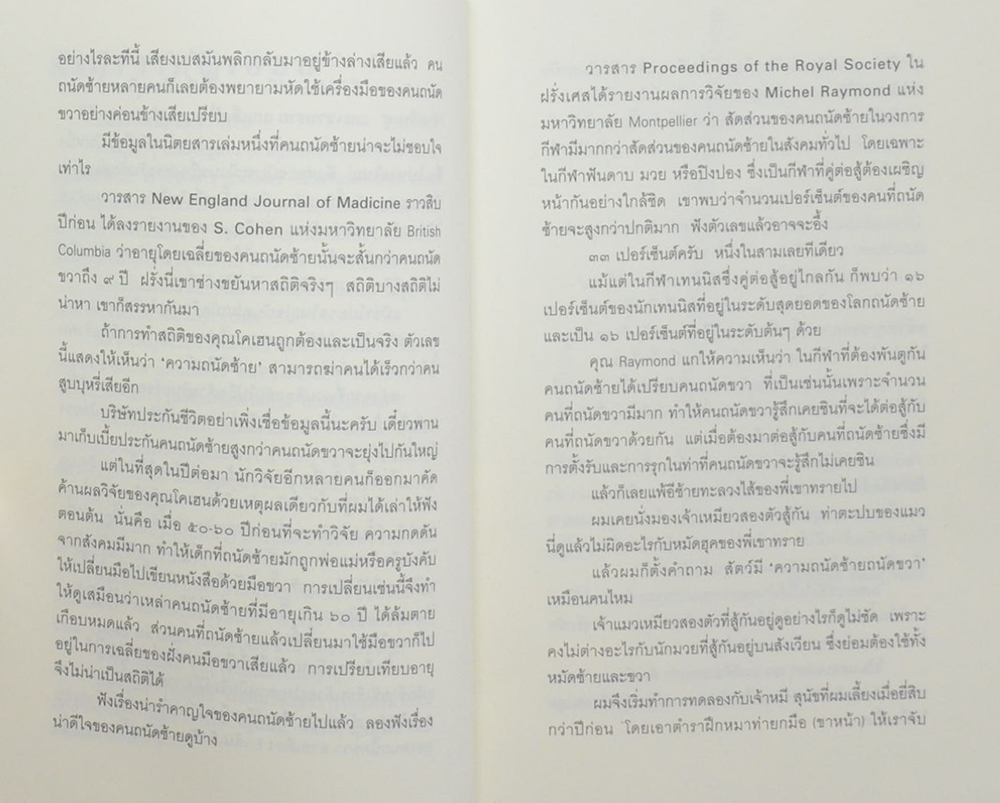 อย่างไรละทีนี้ เสียงเบสมันพลิกกลับมาอยู่ข้างล่างเสียแล้ว คน
ถนัดซ้ายหลายคนก็เลยต้องพยายามหัดใช้เครื่องมือของคนถนัด
ขวาอย่างค่อนข้างเสียเปรียบ
มีข้อมูลในนิตยสารเล่มหนึ่งที่คนถนัดซ้ายน่าจะไม่ชอบใจ
เท่าไร
วารสาร New England Journal of Madicine ราวสิบ
ปีก่อน ได้ลงรายงานของ S. Cohen แห่งมหาวิทยาลัย British
Columbia ว่าอายุโดยเฉลี่ยของคนถนัดซ้ายนั้นจะสั้นกว่าคนถนัด
ขวาถึง ๙ ปี ฝรั่งนี่เขาช่างขยันหาสถิติจริงๆ สถิติบางสถิติไม่
น่าหา เขาก็สรรหากันมา
ถ้าการทำสถิติของคุณโคเฮนถูกต้องและเป็นจริง ตัวเลข
นี้แสดงให้เห็นว่า ‘ความถนัดซ้าย’ สามารถฆ่าคนได้เร็วกว่าคน
สูบบุหรี่เสียอีก
บริษัทประกันชีวิตอย่าเพิ่งเชื่อข้อมูลนี้นะครับ เดี๋ยวพาน
มาเก็บเบี้ยประกันคนถนัดซ้ายสูงกว่าคนถนัดขวาจะยุ่งไปกันใหญ่
แต่ในที่สุดในปีต่อมา นักวิจัยอีกหลายคนก็ออกมาคัด
ค้านผลวิจัยของคุณโคเฮนด้วยเหตุผลเดียวกับที่ผมได้เล่าให้ฟัง
ตอนต้น นั่นคือ เมื่อ ๕๐-๖๐ ปีก่อนที่จะทำวิจัย ความกดดัน
จากสังคมมีมาก ทำให้เด็กที่ถนัดซ้ายมักถูกพ่อแม่หรือครูบังคับ
ให้เปลี่ยนมือไปเขียนหนังสือด้วยมือขวา การเปลี่ยนเช่นนี้จึงทำ
ให้ดูเสมือนว่าเหล่าคนถนัดซ้ายที่มีอายุเกิน ๖๐ ปี ได้ล้มตาย
เกือบหมดแล้ว ส่วนคนที่ถนัดซ้ายแล้วเปลี่ยนมาใช้มือขวาก็ไป
อยู่ในการเฉลี่ยของฝั่งคนมือขวาเสียแล้ว การเปรียบเทียบอายุ
จึงไม่น่าเป็นสถิติได้
ฟังเรื่องน่ารำคาญใจของคนถนัดซ้ายไปแล้ว ลองฟังเรื่อง
น่าดีใจของคนถนัดซ้ายดูบ้าง
วารสาร Proceedings of the Royal Society ใน
ฝรั่งเศสได้รายงานผลการวิจัยของ Michel Raymond แห่ง
มหาวิทยาลัย Montpellier ว่า สัดส่วนของคนถนัดซ้ายในวงการ
กีฬามีมากกว่าสัดส่วนของคนถนัดซ้ายในสังคมทั่วไป โดยเฉพาะ
ในกีฬาฟันดาบ มวย หรือปิงปอง ซึ่งเป็นกีฬาที่คู่ต่อสู้ต้องเผชิญ
หน้ากันอย่างใกล้ชิด เขาพบว่าจำนวนเปอร์เซ็นต์ของคนที่ถนัด
ซ้ายจะสูงกว่าปกติมาก ฟังตัวเลขแล้วอาจจะอึ้ง
๓๓ เปอร์เซ็นต์ครับ หนึ่งในสามเลยทีเดียว
แม้แต่ในกีฬาเทนนิสซึ่งคู่ต่อสู้อยู่ไกลกัน ก็พบว่า ๑๖
เปอร์เซ็นต์ของนักเทนนิสที่อยู่ในระดับสุดยอดของโลกถนัดซ้าย
และเป็น ๑๖ เปอร์เซ็นต์ที่อยู่ในระดับต้นๆ ด้วย
คุณ Raymond แกให้ความเห็นว่า ในกีฬาที่ต้องพันตูกัน
คนถนัดซ้ายได้เปรียบคนถนัดขวา ที่เป็นเช่นนั้นเพราะจำนวน
คนที่ถนัดขวามีมาก ทำให้คนถนัดขวารู้สึกเคยชินที่จะได้ต่อสู้กับ
คนที่ถนัดขวาด้วยกัน แต่เมื่อต้องมาต่อสู้กับคนที่ถนัดซ้ายซึ่งมี
การตั้งรับและการรุกในท่าที่คนถนัดขวาจะรู้สึกไม่เคยชิน
แล้วก็เลยแพ้อีซ้ายทะลวงไส้ของพี่เขาทรายไป
ผมเคยนั่งมองเจ้าเหมียวสองตัวสู้กัน ท่าตะปบของแมว
นี่ดูแล้วไม่ผิดอะไรกับหมัดฮุคของพี่เขาทราย
แล้วผมก็ตั้งคำถาม สัตว์มี ‘ความถนัดซ้ายถนัดขวา’
เหมือนคนไหม
เจ้าแมวเหมียวสองตัวที่สู้กันอยู่ดูอย่างไรก็ดูไม่ชัด เพราะ
คงไม่ต่างอะไรกับนักมวยที่สู้กันอยู่บนสังเวียน ซึ่งย่อมต้องใช้ทั้ง
หมัดซ้ายและขวา
ผมจึงเริ่มทำการทดลองกับเจ้าหมี สุนัขที่ผมเลี้ยงเมื่อยี่สิบ
กว่าปีก่อน โดยเอาตำราฝึกหมาท่ายกมือ (ขาหน้า) ให้เราจับ